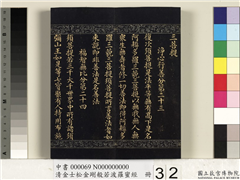 三菩提
淨心行善分第二十三
復次須菩提是法平等無有高下是名
阿耨多羅三藐三菩提以無我無人無
眾生無壽者修一切善法即得阿耨多
羅三藐三菩提須菩提所言善法者如
來說即非善法是名善法
福智無比分第二十四
須菩提若三千大千世界中所有諸須
彌山王如是等七寶聚有人持用布施
中書 000069 N000000000
清金士松金剛般若波羅蜜經 冊
32
國立故宮博物院